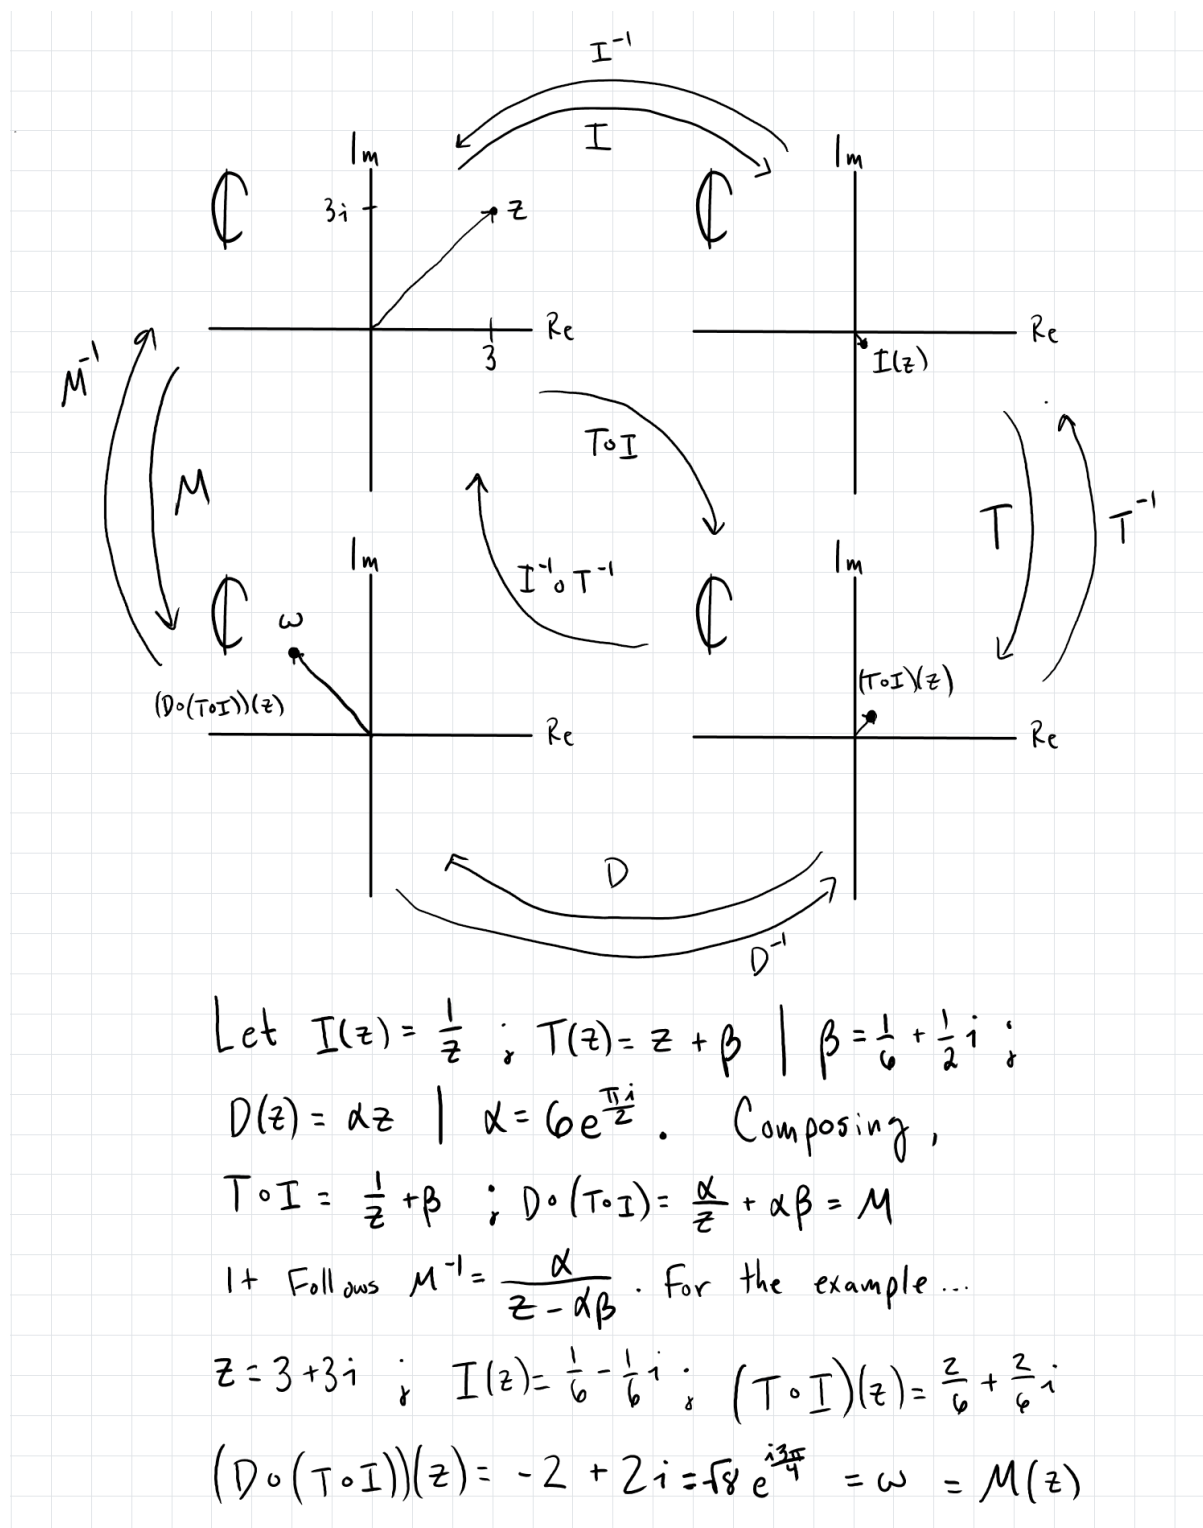 I⁻¹
I
Im
Im
ℂ
3i
z
ℂ
Re
3
Re
I(z)
M⁻¹
M
T∘I
T
T⁻¹
I⁻¹∘T⁻¹
Im
Im
ℂ
ω
ℂ
(D∘(T∘I))(z)
(T∘I)(z)
Re
Re
D
D⁻¹
Let I(z) = 1/z ; T(z) = z + β | β = 1/6 + 1/2 i ;
D(z) = αz | α = 6e^(πi/2) . Composing,
T∘I = 1/z + β ; D∘(T∘I) = α/z + αβ = M
It Follows M⁻¹ = α/(z - αβ) . For the example...
z = 3 + 3i ; I(z) = 1/6 - 1/6 i ; (T∘I)(z) = 2/6 + 2/6 i
(D∘(T∘I))(z) = -2 + 2i = √8 e^(i3π/4) = ω = M(z)